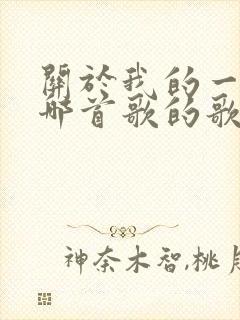 關於我的一
哪首歌的歌
神奈木智,桃月